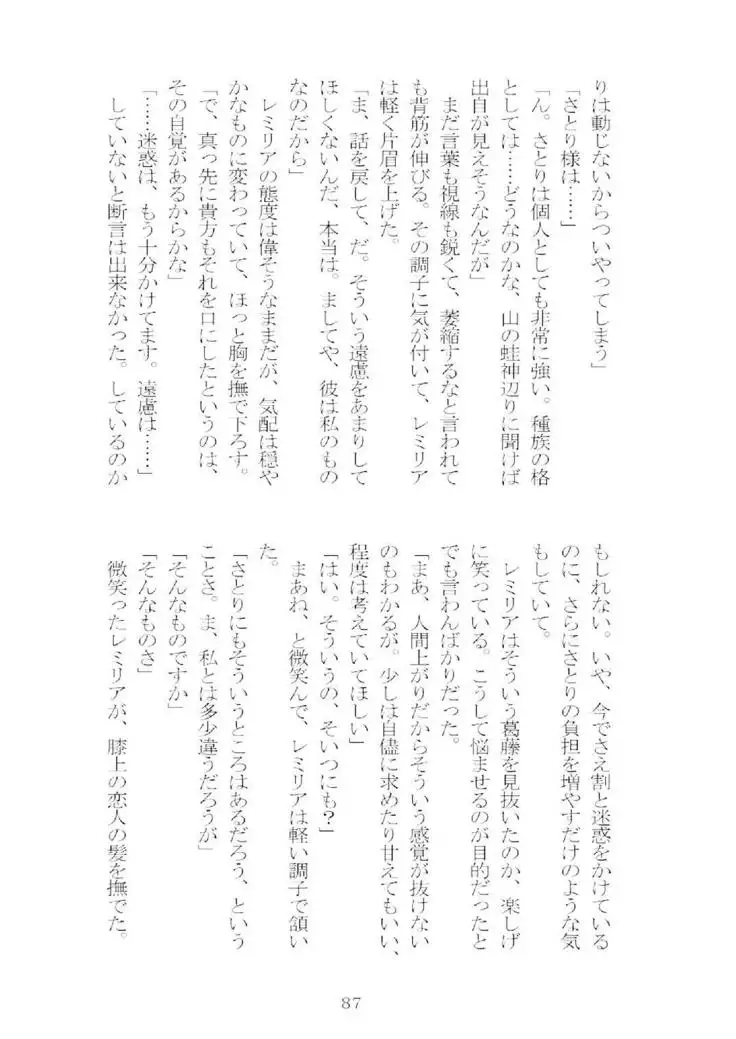 りは動じないからついやってしまう」
「さとり様は……」
「ん。さとりは個人としても非常に強い。種族の格
としては……どうなのかな、山の蛙神辺りに聞けば
出自が見えそうなんだが」
まだ言葉も視線も鋭くて、萎縮するなと言われて
も背筋が伸びる。その調子に気が付いて、レミリア
は軽く片眉を上げた。
「ま、話を戻して、だ。そういう遠慮をあまりして
ほしくないんだ、本当は。ましてや、彼は私のもの
なのだから」
レミリアの態度は偉そうなままだが、気配は穏や
かなものに変わっていて、ほっと胸を撫で下ろす。
「で、真っ先に貴方もそれを口にしたというのは、
その自覚があるからかな」
「……迷惑は、もう十分かけてます。遠慮は……」
していないと断言は出来なかった。しているのか
もしれない。いや、今でさえ割と迷惑をかけている
のに、さらにさとりの負担を増やすだけのような気
もしていて。
レミリアはそういう葛藤を見抜いたのか、楽しげ
に笑っている。こうして悩ませるのが目的だったと
でも言わんばかりだった。
「まあ、人間上がりだからそういう感覚が抜けない
のもわかるが。少しは自儘に求めたり甘えてもいい、
程度は考えていてほしい」
「はい。そういうの、そいつにも?」
まあね、と微笑んで、レミリアは軽い調子で頷い
た。
「さとりにもそういうところはあるだろう、という
ことさ。ま、私とは多少違うだろうが」
「そんなものですか」
「そんなものさ」
微笑ったレミリアが、膝上の恋人の髪を撫でた。
87